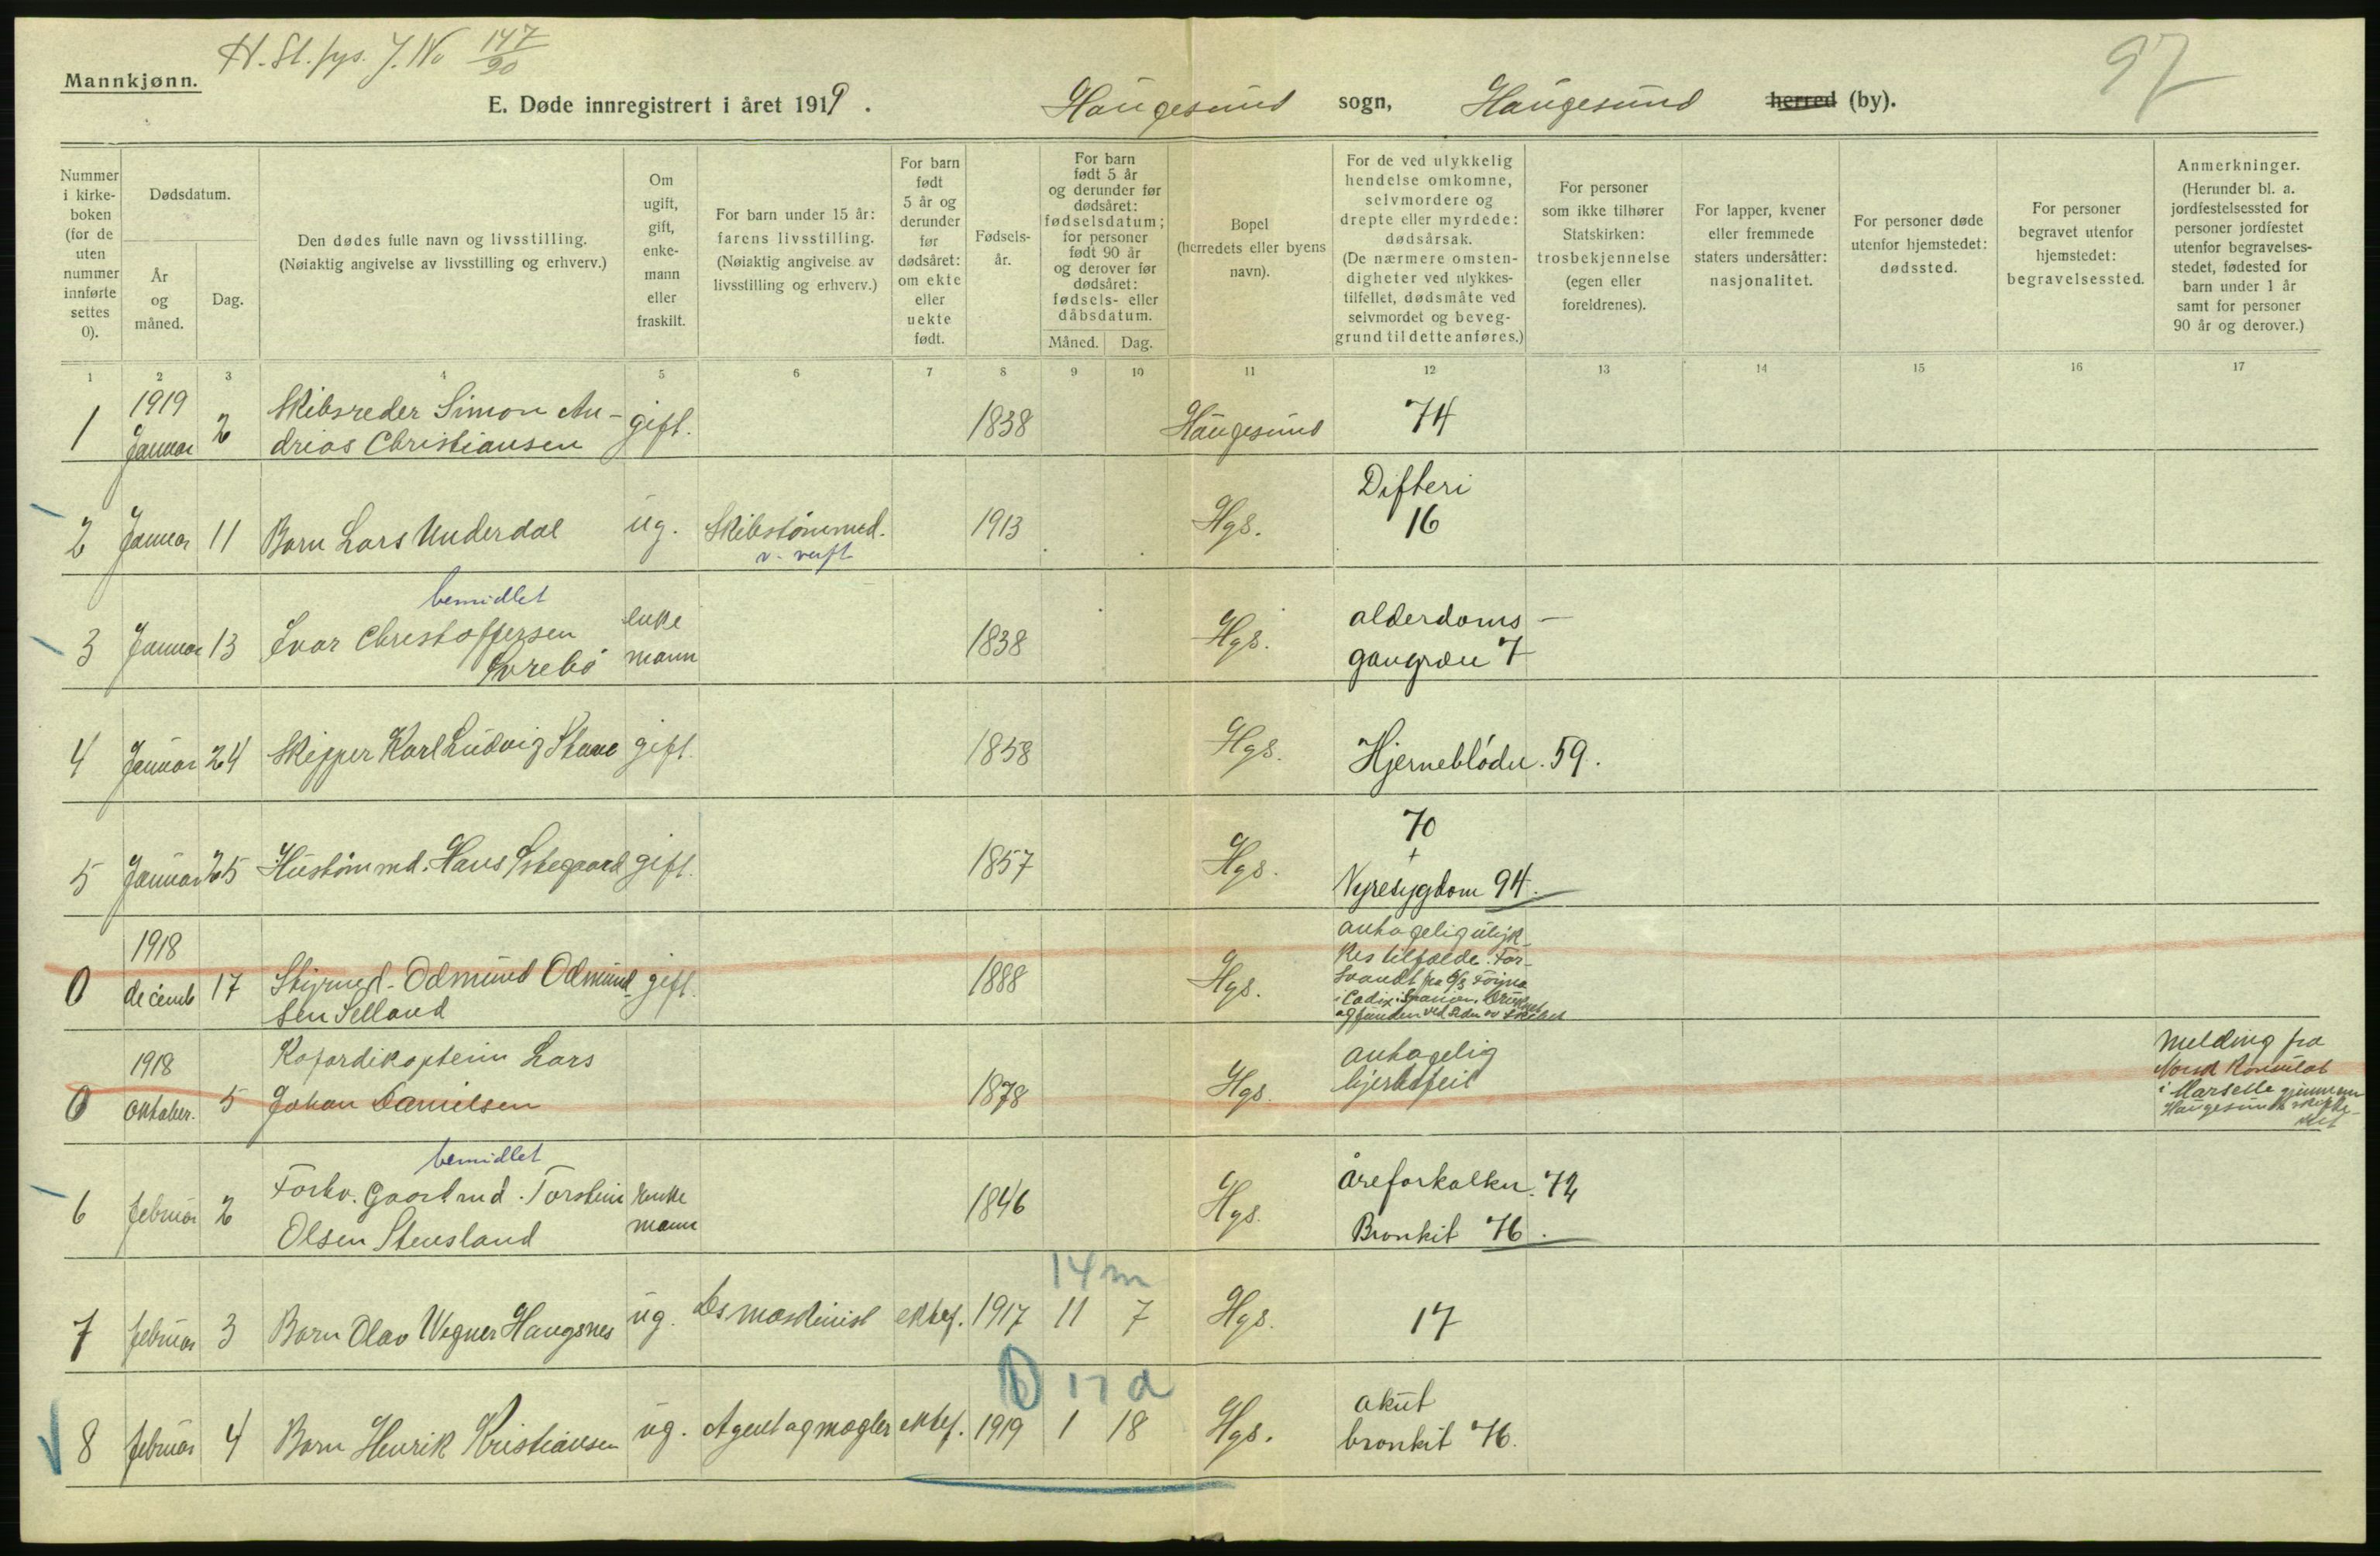 H. St. fys. J. No 147/20
97
Mannkjønn.
E. Døde innregistrert i året 1919. Haugesund sogn, Haugesund herred (by).
Nummer i kirke-boken (for de uten nummer innførte settes 0).
Dødsdatum.
År og måned.
Dag.
Den dødes fulle navn og livsstilling. (Nøiaktig angivelse av livsstilling og erhverv.)
Om ugift, gift, enke-mann eller fraskilt.
For barn under 15 år: farens livsstilling. (Nøiaktig angivelse av livsstilling og erhverv.)
For barn født 5 år og derunder før dødsåret: om ekte eller uekte født.
Fødsels-år.
For barn født 5 år og derunder før dødsåret: fødselsdatum; for personer født 90 år og derover før dødsåret: fødsels- eller dåbsdatum.
Måned. Dag.
Bopel (herredets eller byens navn).
For de ved ulykkelig hendelse omkomne, selvmordere og drepte eller myrdede: dødsårsak. (De nærmere omsten-digheter ved ulykkes-tilfellet, dødsmåte ved selvmordet og beveg-grund til dette anføres.)
For personer som ikke tilhører Statskirken: trosbekjennelse (egen eller foreldrenes).
For lapper, kvener eller fremmede staters undersåtter: nasjonalitet.
For personer døde utenfor hjemstedet: dødssted.
For personer begravet utenfor hjemstedet: begravelsessted.
Anmerkninger. (Herunder bl. a. jordfestelsessted for personer jordfestet utenfor begravelses-stedet, fødested for barn under 1 år samt for personer 90 år og derover.)
1 2 3 4 5 6 7 8 9 10 11 12 13 14 15 16 17
1 1919 Januar 2 Skibsreder Simon An-drias Christiansen gift. 1838 Haugesund 74
2 Januar 11 Barn Lars Underdal ug. Skibstømmed. v. verft 1913 Hgs. Difteri 16
3 Januar 13 bemidlet Ivar Christoffersen Svrebø enke mann 1838 Hgs. alderdoms-gangræn 7
4 Januar 24 Skipper Karl Ludvig Stave gift. 1858 Hgs. Hjerneblødn. 59.
5 Januar 25 Hustømmd. Hans gift. 1857 Hgs. 70 + Nyresygdom 94.
0 1918 decemb 17 Styrmd. Odmund Odmund-sen Selland gift. 1888 Hgs. antagelig ulyk-kes tilfælde. For-svandt fra i Cadix, Spanien. og funden ved siden av skibet
0 1918 oktober. 5 Kofardikaptein Lars Johan Danielsen 1878 Hgs. antagelig hjertefeil Melding fra Norsk Konsulat i Marseille gjennem Haugesunds
6 februar 2 bemidlet Forhv. Gaardmd. Torstein Olsen Stensland enke mann 1846 Hgs. åreforkalkn. 72 Bronkit 76.
14 m
7 februar 3 Barn Olav Wegner Haugsnes ug. Ds maskinist ektef. 1917 11 7 Hgs. 17
17 d
8 februar 4 Barn Henrik Kristiansen ug. Agent og mægler ektef. 1919 1 18 Hgs. akut bronkit 76.